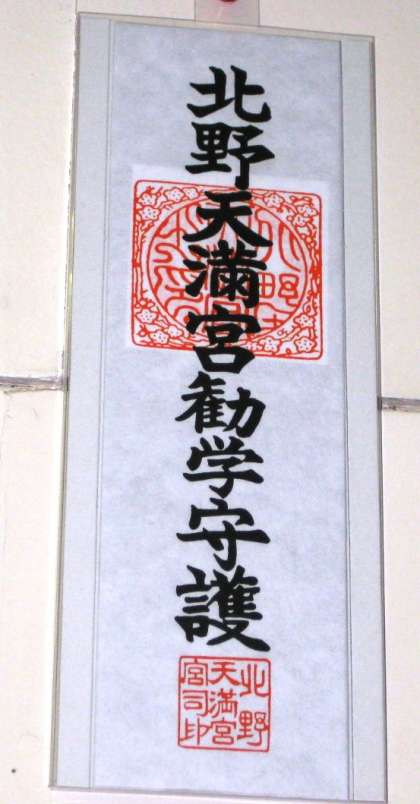 北野天満宮勧学守護
北野
天満宮
宮司印